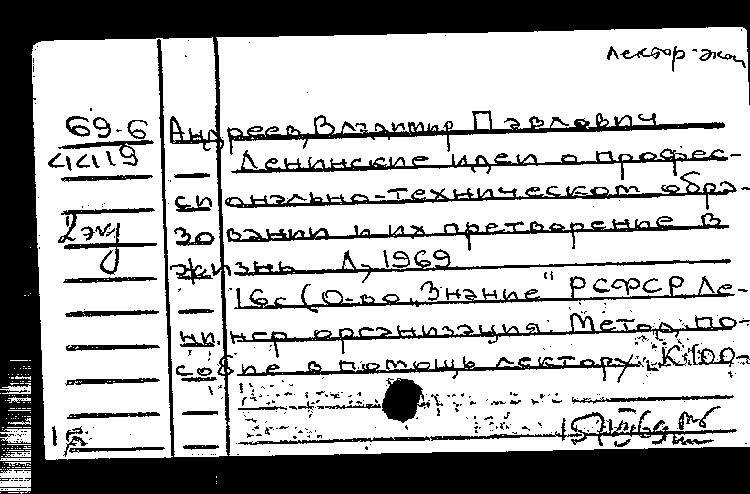 Лектор-экон
69-6 Андреев, Владимир Павлович
44119 Ленинские идеи о профес-
сионально-техническом обра-
2 экз зовании и их претворение в
жизнь Л, 1969
16с (О-во „Знание" РСФСР Ле-
нингр организация. Метод по-
собие в помощь лектору К 100-